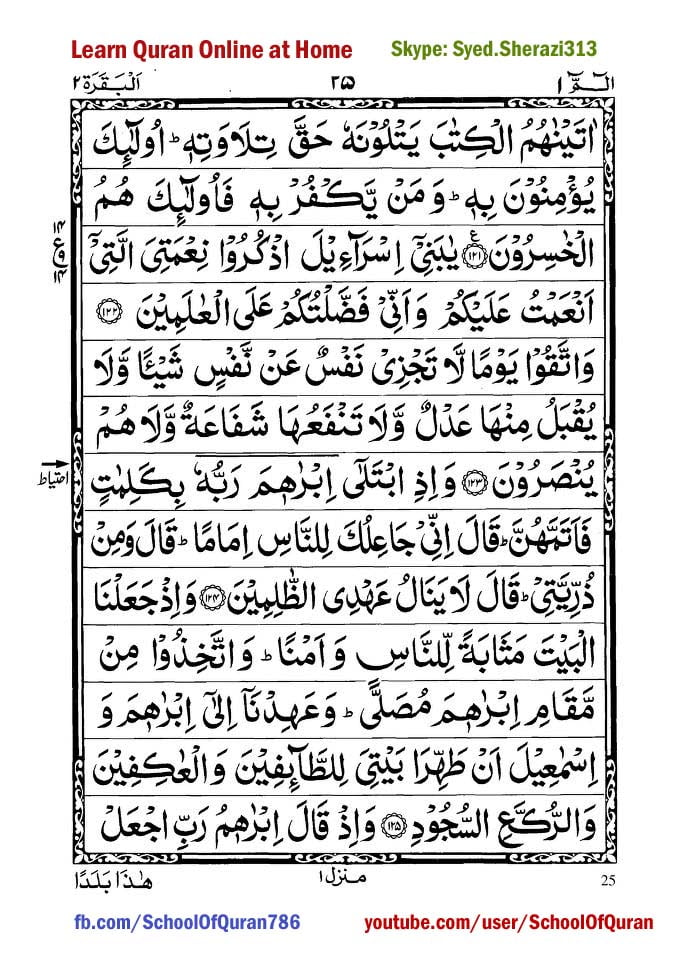 Learn Quran Online at Home Skype: Syed.Sherazi313
الٓمّٓ ١ ٢٥ اَلْبَقَرَة ٢
اٰتَيْنٰهُمُ الْكِتٰبَ يَتْلُوْنَهٗ حَقَّ تِلَاوَتِهٖ ؕ اُولٰٓئِكَ
يُؤْمِنُوْنَ بِهٖ ؕ وَ مَنْ يَّكْفُرْ بِهٖ فَاُولٰٓئِكَ هُمُ
الْخٰسِرُوْنَ ﴿١٢١﴾ ع يٰبَنِيْٓ اِسْرَآءِيْلَ اذْكُرُوْا نِعْمَتِيَ الَّتِيْٓ
١٤
ع
٩
١٤
اَنْعَمْتُ عَلَيْكُمْ وَ اَنِّيْ فَضَّلْتُكُمْ عَلَى الْعٰلَمِيْنَ ﴿١٢٢﴾
وَ اتَّقُوْا يَوْمًا لَّا تَجْزِيْ نَفْسٌ عَنْ نَّفْسٍ شَيْـًٔا وَّ لَا
يُقْبَلُ مِنْهَا عَدْلٌ وَّ لَا تَنْفَعُهَا شَفَاعَةٌ وَّ لَا هُمْ
يُنْصَرُوْنَ ﴿١٢٣﴾ وَ اِذِ ابْتَلٰٓى اِبْرٰهٖمَ رَبُّهٗ بِكَلِمٰتٍ
احتیاط
فَاَتَمَّهُنَّ ؕ قَالَ اِنِّيْ جَاعِلُكَ لِلنَّاسِ اِمَامًا ؕ قَالَ وَ مِنْ
ذُرِّيَّتِيْ ؕ قَالَ لَا يَنَالُ عَهْدِي الظّٰلِمِيْنَ ﴿١٢٤﴾ وَ اِذْ جَعَلْنَا
الْبَيْتَ مَثَابَةً لِّلنَّاسِ وَ اَمْنًا ؕ وَ اتَّخِذُوْا مِنْ
مَّقَامِ اِبْرٰهٖمَ مُصَلًّى ؕ وَ عَهِدْنَآ اِلٰٓى اِبْرٰهٖمَ وَ
اِسْمٰعِيْلَ اَنْ طَهِّرَا بَيْتِيَ لِلطَّآئِفِيْنَ وَ الْعٰكِفِيْنَ
وَ الرُّكَّعِ السُّجُوْدِ ﴿١٢٥﴾ وَ اِذْ قَالَ اِبْرٰهٖمُ رَبِّ اجْعَلْ
هٰذَا بَلَدًا منزل ١ 25
fb.com/SchoolOfQuran786 youtube.com/user/SchoolOfQuran